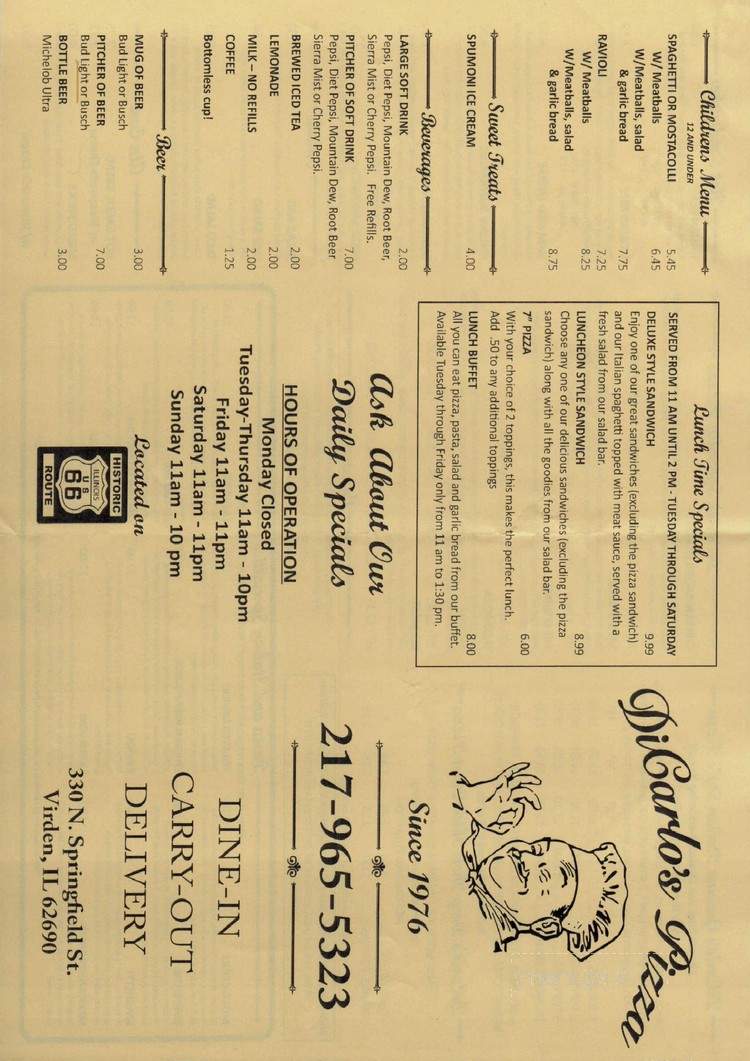 Childrens Menu
12 AND UNDER
SPAGHETTI OR MOSTACOLLI 5.45
W/ Meatballs 6.45
W/Meatballs, salad
& garlic bread 7.75
RAVIOLI 7.25
W/ Meatballs 8.25
W/Meatballs, salad
& garlic bread 8.75
Sweet Treats
SPUMONI ICE CREAM 4.00
Beverages
LARGE SOFT DRINK 2.00
Pepsi, Diet Pepsi, Mountain Dew, Root Beer,
Sierra Mist or Cherry Pepsi. Free Refills.
PITCHER OF SOFT DRINK 7.00
Pepsi, Diet Pepsi, Mountain Dew, Root Beer
Sierra Mist or Cherry Pepsi.
BREWED ICED TEA 2.00
LEMONADE 2.00
MILK – NO REFILLS 2.00
COFFEE 1.25
Bottomless cup!
Beer
MUG OF BEER 3.00
Bud Light or Busch
PITCHER OF BEER 7.00
Bud Light or Busch
BOTTLE BEER 3.00
Michelob Ultra
Lunch Time Specials
SERVED FROM 11 AM UNTIL 2 PM - TUESDAY THROUGH SATURDAY
DELUXE STYLE SANDWICH 9.99
Enjoy one of our great sandwiches (excluding the pizza sandwich)
and our Italian spaghetti topped with meat sauce, served with a
fresh salad from our salad bar.
LUNCHEON STYLE SANDWICH 8.99
Choose any one of our delicious sandwiches (excluding the pizza
sandwich) along with all the goodies from our salad bar.
7” PIZZA 6.00
With your choice of 2 toppings, this makes the perfect lunch.
Add .50 to any additional toppings
LUNCH BUFFET 8.00
All you can eat pizza, pasta, salad and garlic bread from our buffet.
Available Tuesday through Friday only from 11 am to 1:30 pm.
Ask About Our
Daily Specials
HOURS OF OPERATION
Monday Closed
Tuesday-Thursday 11am - 10pm
Friday 11am - 11pm
Saturday 11am - 11pm
Sunday 11am - 10 pm
Located on
HISTORIC
ILLINOIS
66
ROUTE
DiCarlo's Pizza
Since 1976
217-965-5323
DINE-IN
CARRY-OUT
DELIVERY
330 N. Springfield St.
Virden, IL 62690